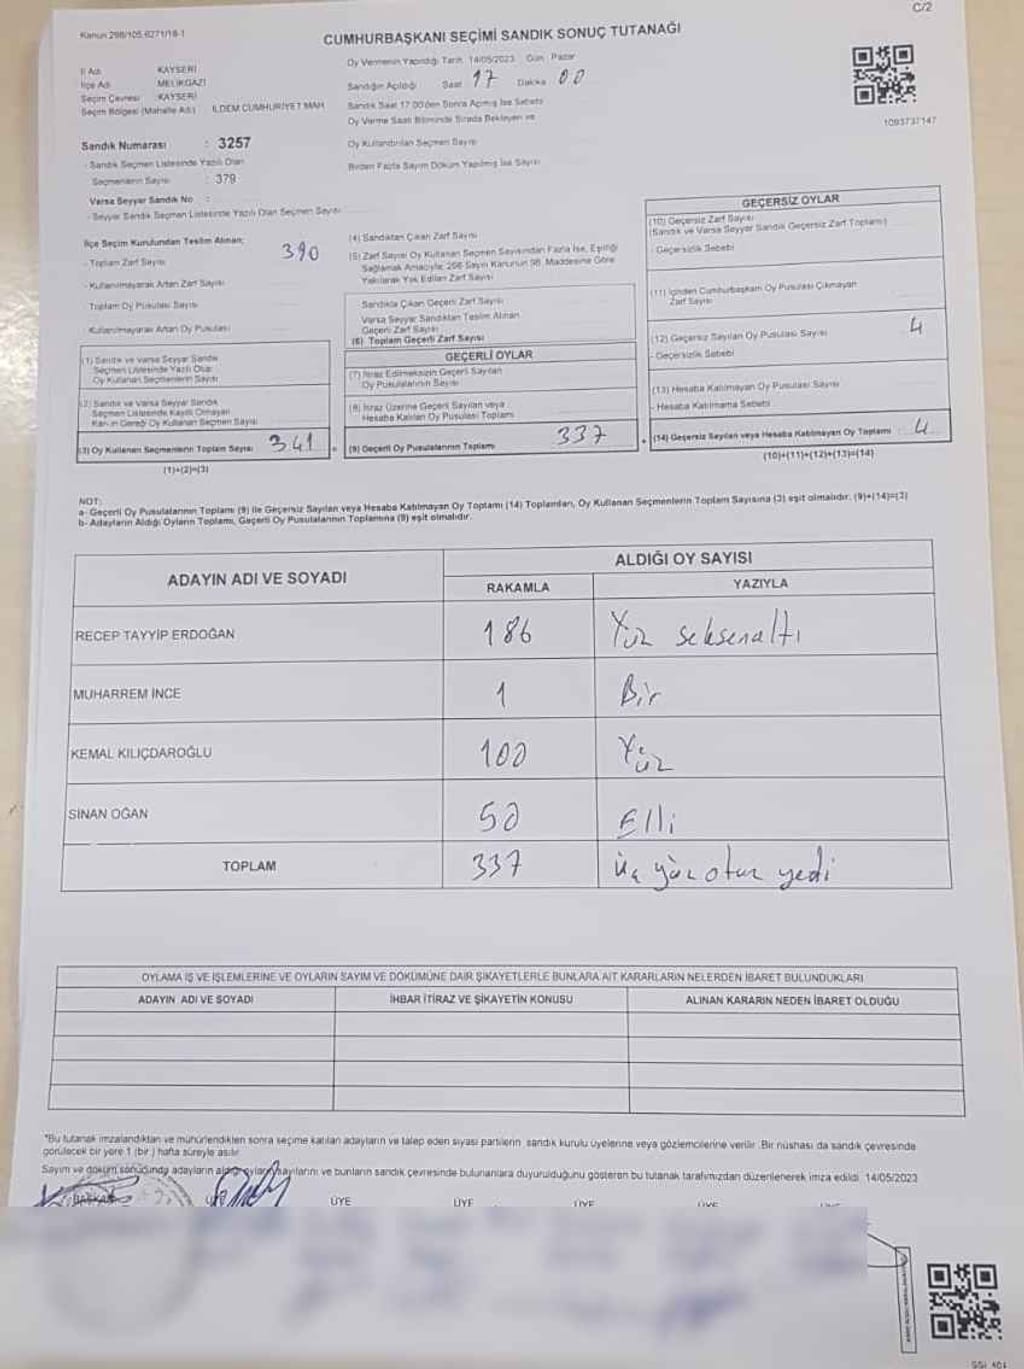 C/2
Kanun 298/105,6271/18-1
CUMHURBAŞKANI SEÇİMİ SANDIK SONUÇ TUTANAĞI
İl Adı : KAYSERİ
İlçe Adı : MELİKGAZİ
Seçim Çevresi : KAYSERİ
Seçim Bölgesi (Mahalle Adı) : İLDEM CUMHURİYET MAH
Sandık Numarası : 3257
- Sandık Seçmen Listesinde Yazılı Olan
Seçmenlerin Sayısı : 379
Varsa Seyyar Sandık No :
- Seyyar Sandık Seçmen Listesinde Yazılı Olan Seçmen Sayısı
Oy Vermenin Yapıldığı Tarih: 14/05/2023 Gün: Pazar
Sandığın Açıldığı Saat 17 Dakika 00
Sandık Saat 17.00'den Sonra Açılmış İse Sebebi
Oy Verme Saati Bitiminde Sırada Bekleyen ve
Oy Kullandırılan Seçmen Sayısı
Birden Fazla Sayım Döküm Yapılmış İse Sayısı
1093737147
İlçe Seçim Kurulundan Teslim Alınan;
- Toplam Zarf Sayısı 390
- Kullanılmayarak Artan Zarf Sayısı
Toplam Oy Pusulası Sayısı
- Kullanılmayarak Artan Oy Pusulası
(1) Sandık ve Varsa Seyyar Sandık
Seçmen Listesinde Yazılı Olup
Oy Kullanan Seçmenlerin Sayısı
(2) Sandık ve Varsa Seyyar Sandık
Seçmen Listesinde Kayıtlı Olmayan
Kanun Gereği Oy Kullanan Seçmen Sayısı
(3) Oy Kullanan Seçmenlerin Toplam Sayısı 341
(1)+(2)=(3)
(4) Sandıktan Çıkan Zarf Sayısı
(5) Zarf Sayısı Oy Kullanan Seçmen Sayısından Fazla İse, Eşitliği
Sağlamak Amacıyla, 298 Sayılı Kanunun 98. Maddesine Göre
Yakılarak Yok Edilen Zarf Sayısı
Sandıkta Çıkan Geçerli Zarf Sayısı
Varsa Seyyar Sandıktan Teslim Alınan
Geçerli Zarf Sayısı
(6) Toplam Geçerli Zarf Sayısı
GEÇERLİ OYLAR
(7) İtiraz Edilmeksizin Geçerli Sayılan
Oy Pusulalarının Sayısı
(8) İtiraz Üzerine Geçerli Sayılan veya
Hesaba Katılan Oy Pusulası Toplamı
(9) Geçerli Oy Pusulalarının Toplamı 337
GEÇERSİZ OYLAR
(10) Geçersiz Zarf Sayısı
(Sandık ve Varsa Seyyar Sandık Geçersiz Zarf Toplamı)
- Geçersizlik Sebebi
(11) İçinden Cumhurbaşkanı Oy Pusulası Çıkmayan
Zarf Sayısı
(12) Geçersiz Sayılan Oy Pusulası Sayısı 4
- Geçersizlik Sebebi
(13) Hesaba Katılmayan Oy Pusulası Sayısı
- Hesaba Katılmama Sebebi
(14) Geçersiz Sayılan veya Hesaba Katılmayan Oy Toplamı : 4
(10)+(11)+(12)+(13)=(14)
NOT:
a- Geçerli Oy Pusulalarının Toplamı (9) ile Geçersiz Sayılan veya Hesaba Katılmayan Oy Toplamı (14) Toplamları, Oy Kullanan Seçmenlerin Toplam Sayısına (3) eşit olmalıdır. (9)+(14)=(3)
b- Adayların Aldığı Oyların Toplamı, Geçerli Oy Pusulalarının Toplamına (9) eşit olmalıdır.
ADAYIN ADI VE SOYADI
ALDIĞI OY SAYISI
RAKAMLA YAZIYLA
RECEP TAYYİP ERDOĞAN 186 Yüz seksenaltı
MUHARREM İNCE 1 Bir
KEMAL KILIÇDAROĞLU 100 Yüz
SİNAN OĞAN 50 Elli
TOPLAM 337 üç yüz otuz yedi
OYLAMA İŞ VE İŞLEMLERİNE VE OYLARIN SAYIM VE DÖKÜMÜNE DAİR ŞİKAYETLERLE BUNLARA AİT KARARLARIN NELERDEN İBARET BULUNDUKLARI
ADAYIN ADI VE SOYADI İHBAR İTİRAZ VE ŞİKAYETİN KONUSU ALINAN KARARIN NEDEN İBARET OLDUĞU
*Bu tutanak imzalandıktan ve mühürlendikten sonra seçime katılan adayların ve talep eden siyasi partilerin sandık kurulu üyelerine veya gözlemcilerine verilir. Bir nüshası da sandık çevresinde
görülecek bir yere 1 (bir) hafta süreyle asılır.
Sayım ve döküm sonucunda adayların aldığı oyların sayılarını ve bunların sandık çevresinde bulunanlara duyurulduğunu gösteren bu tutanak tarafımızdan düzenlenerek imza edildi. 14/05/2023
BAŞKAN ÜYE ÜYE ÜYE ÜYE ÜYE